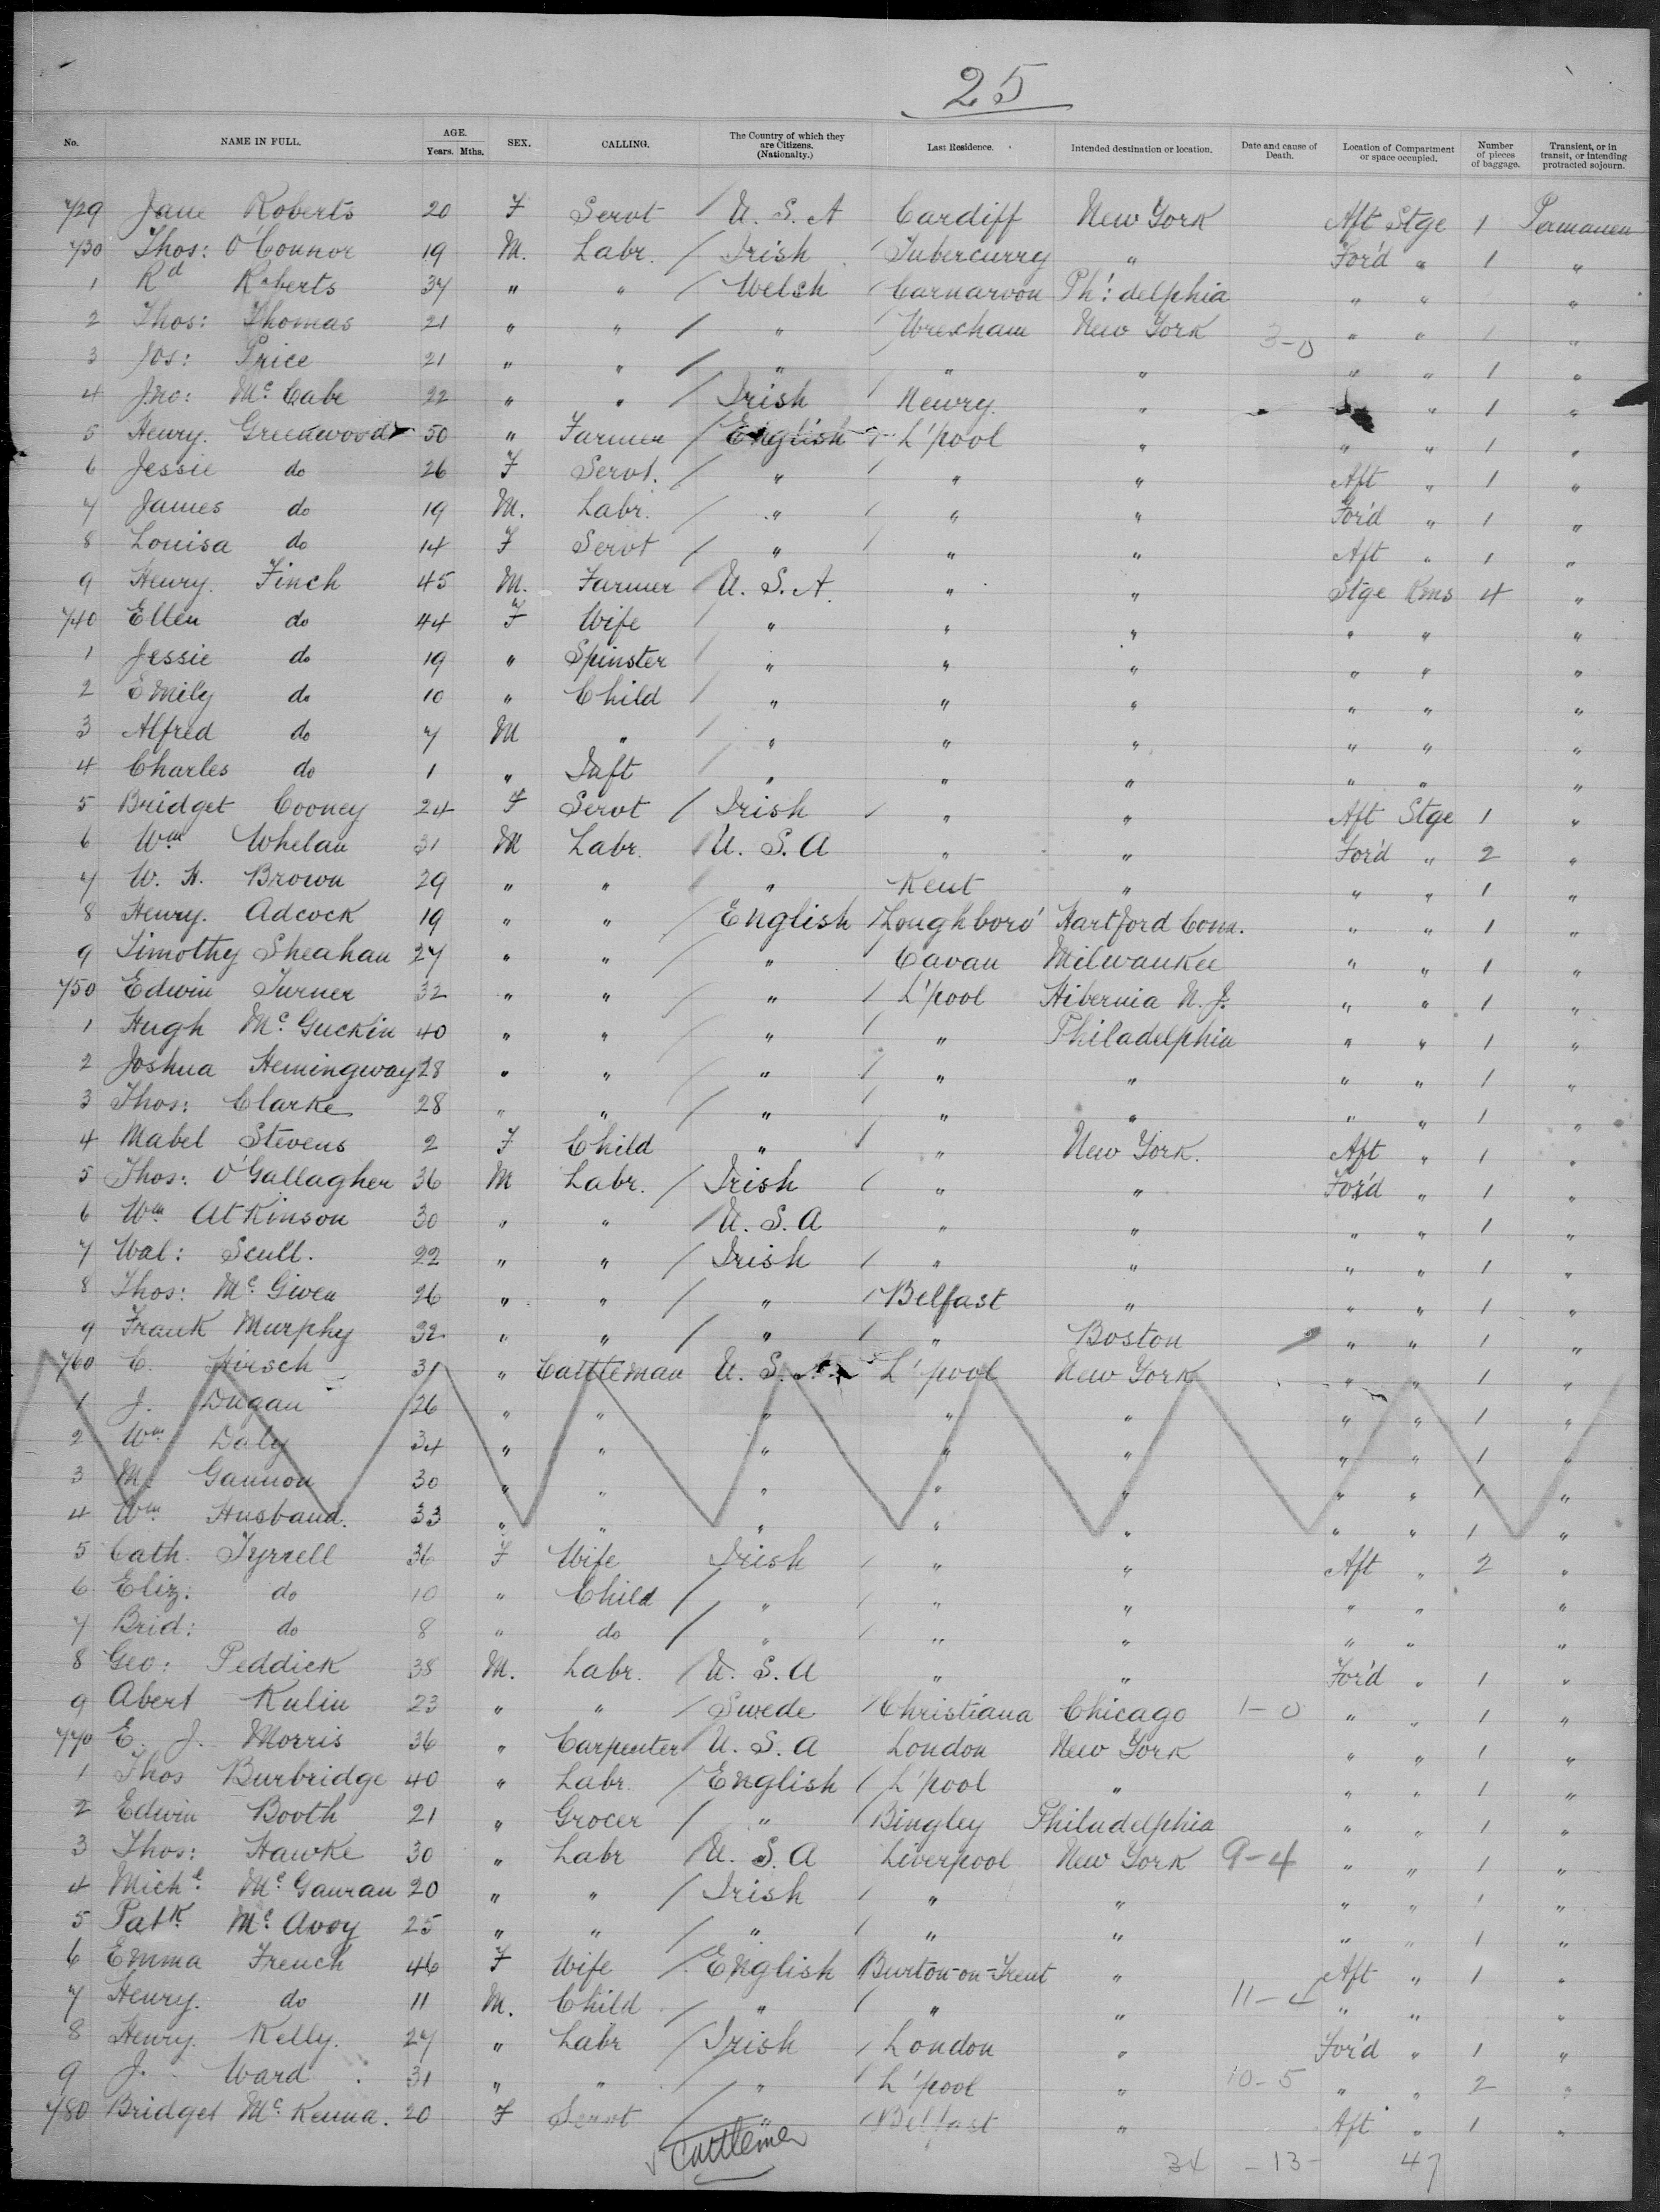 25
No. NAME IN FULL. AGE. Years. Mths. SEX. CALLING. The Country of which they are Citizens. (Nationalty.) Last Residence. Intended destination or location. Date and cause of Death. Location of Compartment or space occupied. Number of pieces of baggage. Transient, or in transit, or intending protracted sojourn.
729 Jane Roberts 20 F Servt / U. S. A Cardiff New York Aft Stge 1 Permanen
730 Thos: O'Connor 19 M. Labr. / Irish / Tubercurry " For'd " 1 "
1 Rd Roberts 37 " " / Welsh / Carnarvon Ph': delphia " " "
2 Thos: Thomas 21 " " / " / Wrexham New York 3-0 " " 1 "
3 Jos: Price 21 " " / " " " " " 1 "
4 Jno: Mc Cabe 22 " " / Irish / Newry. " " 1 "
5 Henry. Greenwood 50 " Farmer / English / L'pool " " " 1 "
6 Jessie do 26 F Servt. / " / " " Aft " 1 "
7 James do 19 M. Labr. / " / " " For'd " 1 "
8 Louisa do 14 F Servt / " / " " Aft " 1 "
9 Henry. Finch 45 M. Farmer / U. S. A. " " Stge Rms 4 "
740 Ellen do 44 F Wife / " " " " " "
1 Jessie do 19 " Spinster / " " " " " "
2 Emily do 10 " Child / " " " " " "
3 Alfred do 7 M " / " " " " " "
4 Charles do 1 " Inft / " " " " " "
5 Bridget Cooney 24 F Servt / Irish / " " Aft Stge 1 "
6 Wm Whelan 31 M Labr. / U. S. A " " For'd " 2 "
7 W. H. Brown 29 " " / " Kent " " " 1 "
8 Henry. Adcock 19 " " / English / Loughboro' Hartford Conn. " " 1 "
9 Timothy Sheahan 27 " " / " / Cavan Milwaukee " " 1 "
750 Edwin Turner 32 " " / " / L'pool Hibernia N. J. " " 1 "
1 Hugh Mc Guckin 40 " " / " / " Philadelphia " " 1 "
2 Joshua Hemingway 28 " " / " / " " " " 1 "
3 Thos: Clarke 28 " " / " / " " " " 1 "
4 Mabel Stevens 2 F Child " / " New York. Aft " 1 "
5 Thos: O'Gallagher 36 M Labr. / Irish / " " For'd " 1 "
6 Wm Atkinson 30 " " / U. S. A " " " " 1 "
7 Wal: Scull. 22 " " / Irish / " " " " 1 "
8 Thos: Mc Given 26 " " / " / Belfast " " " 1 "
9 Frank Murphy 32 " " / " / " Boston " " 1 "
760 C. Hirsch 31 " Cattleman U. S. A L'pool New York " " 1 "
1 J. Dugan 26 " " " " " " " 1 "
2 Wm Daly 34 " " " " " " " 1 "
3 M. Gannon 30 " " " " " " " 1 "
4 Wm Husband. 33 " " " " " " " 1 "
5 Cath. Tyrrell 36 F Wife Irish / " " Aft " 2 "
6 Eliz: do 10 " Child / " / " " " " "
7 Brid: do 8 " do / " / " " " " "
8 Geo: Peddick 38 M. Labr. / U. S. A " " For'd " 1 "
9 Abert Kulin 23 " " / Swede / Christiana Chicago 1-0 " " 1 "
770 E. J. Morris 36 " Carpenter / U. S. A London New York " " 1 "
1 Thos Burbridge 40 " Labr. / English / L'pool " " " 1 "
2 Edwin Booth 21 " Grocer / " / Bingley Philadelphia " " 1 "
3 Thos: Hawke 30 " Labr / U. S. A Liverpool New York 9-4 " " 1 "
4 Michl Mc Gauran 20 " " / Irish / " " " " 1 "
5 Patk Mc Avoy 25 " " / " / " " " " 1 "
6 Emma French 46 F Wife / English / Burton-on-Trent " Aft " 1 "
7 Henry. do 11 M. Child / " / " " 11-4 " " "
8 Henry. Kelly. 27 " Labr / Irish / London " For'd " 1 "
9 J. Ward 31 " " / " / L'pool " 10-5 " " 2 "
780 Bridget Mc Kenna. 20 F Servt / " / Belfast " Aft " 1 "
5 Cattlemen 34 - 13 - 47